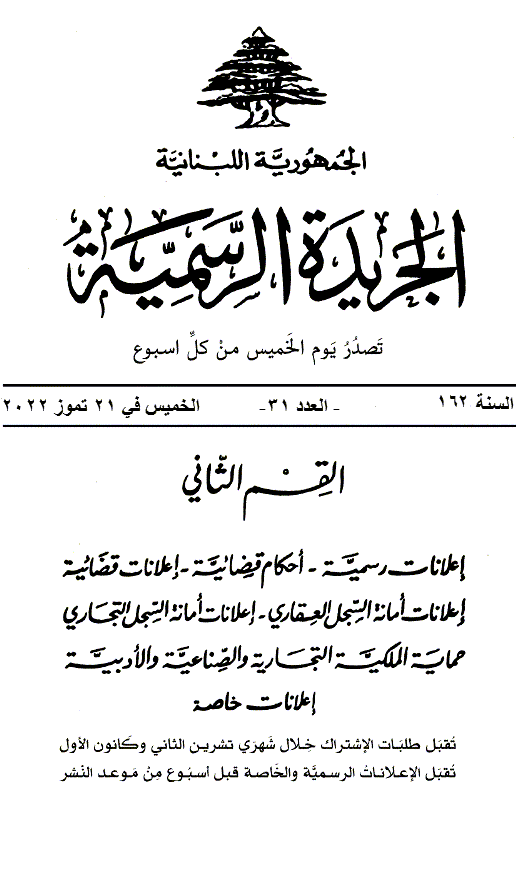 الجُمهُوريَّة اللبْنانيَّة
الجَريدَة الرَّسمِيَّة
تَصدُرُ يَوم الخَميس منْ كلِّ اسبوع
السنة ١٦٢ - العدد ٣١- الخميس في ٢١ تموز ٢٠٢٢
القِسْم الثّاني
إعلانات رسميَّة - أحكام قضائيَّة - إعلانات قضائية
إعلانات أمانة السِّجل العِقاري - إعلانات أمانة السِّجل التجاري
حماية الملكيَّة التجارية والصِّناعيَّة والأدبيَّة
إعلانات خاصة
تُقبَل طلبَات الإشتراك خِلال شَهرَي تشرين الثاني وكَانون الأول
تُقبَل الإعلاناتُ الرسميَّة والخَاصة قبل أسبُوع مِنْ مَوعد النَشر